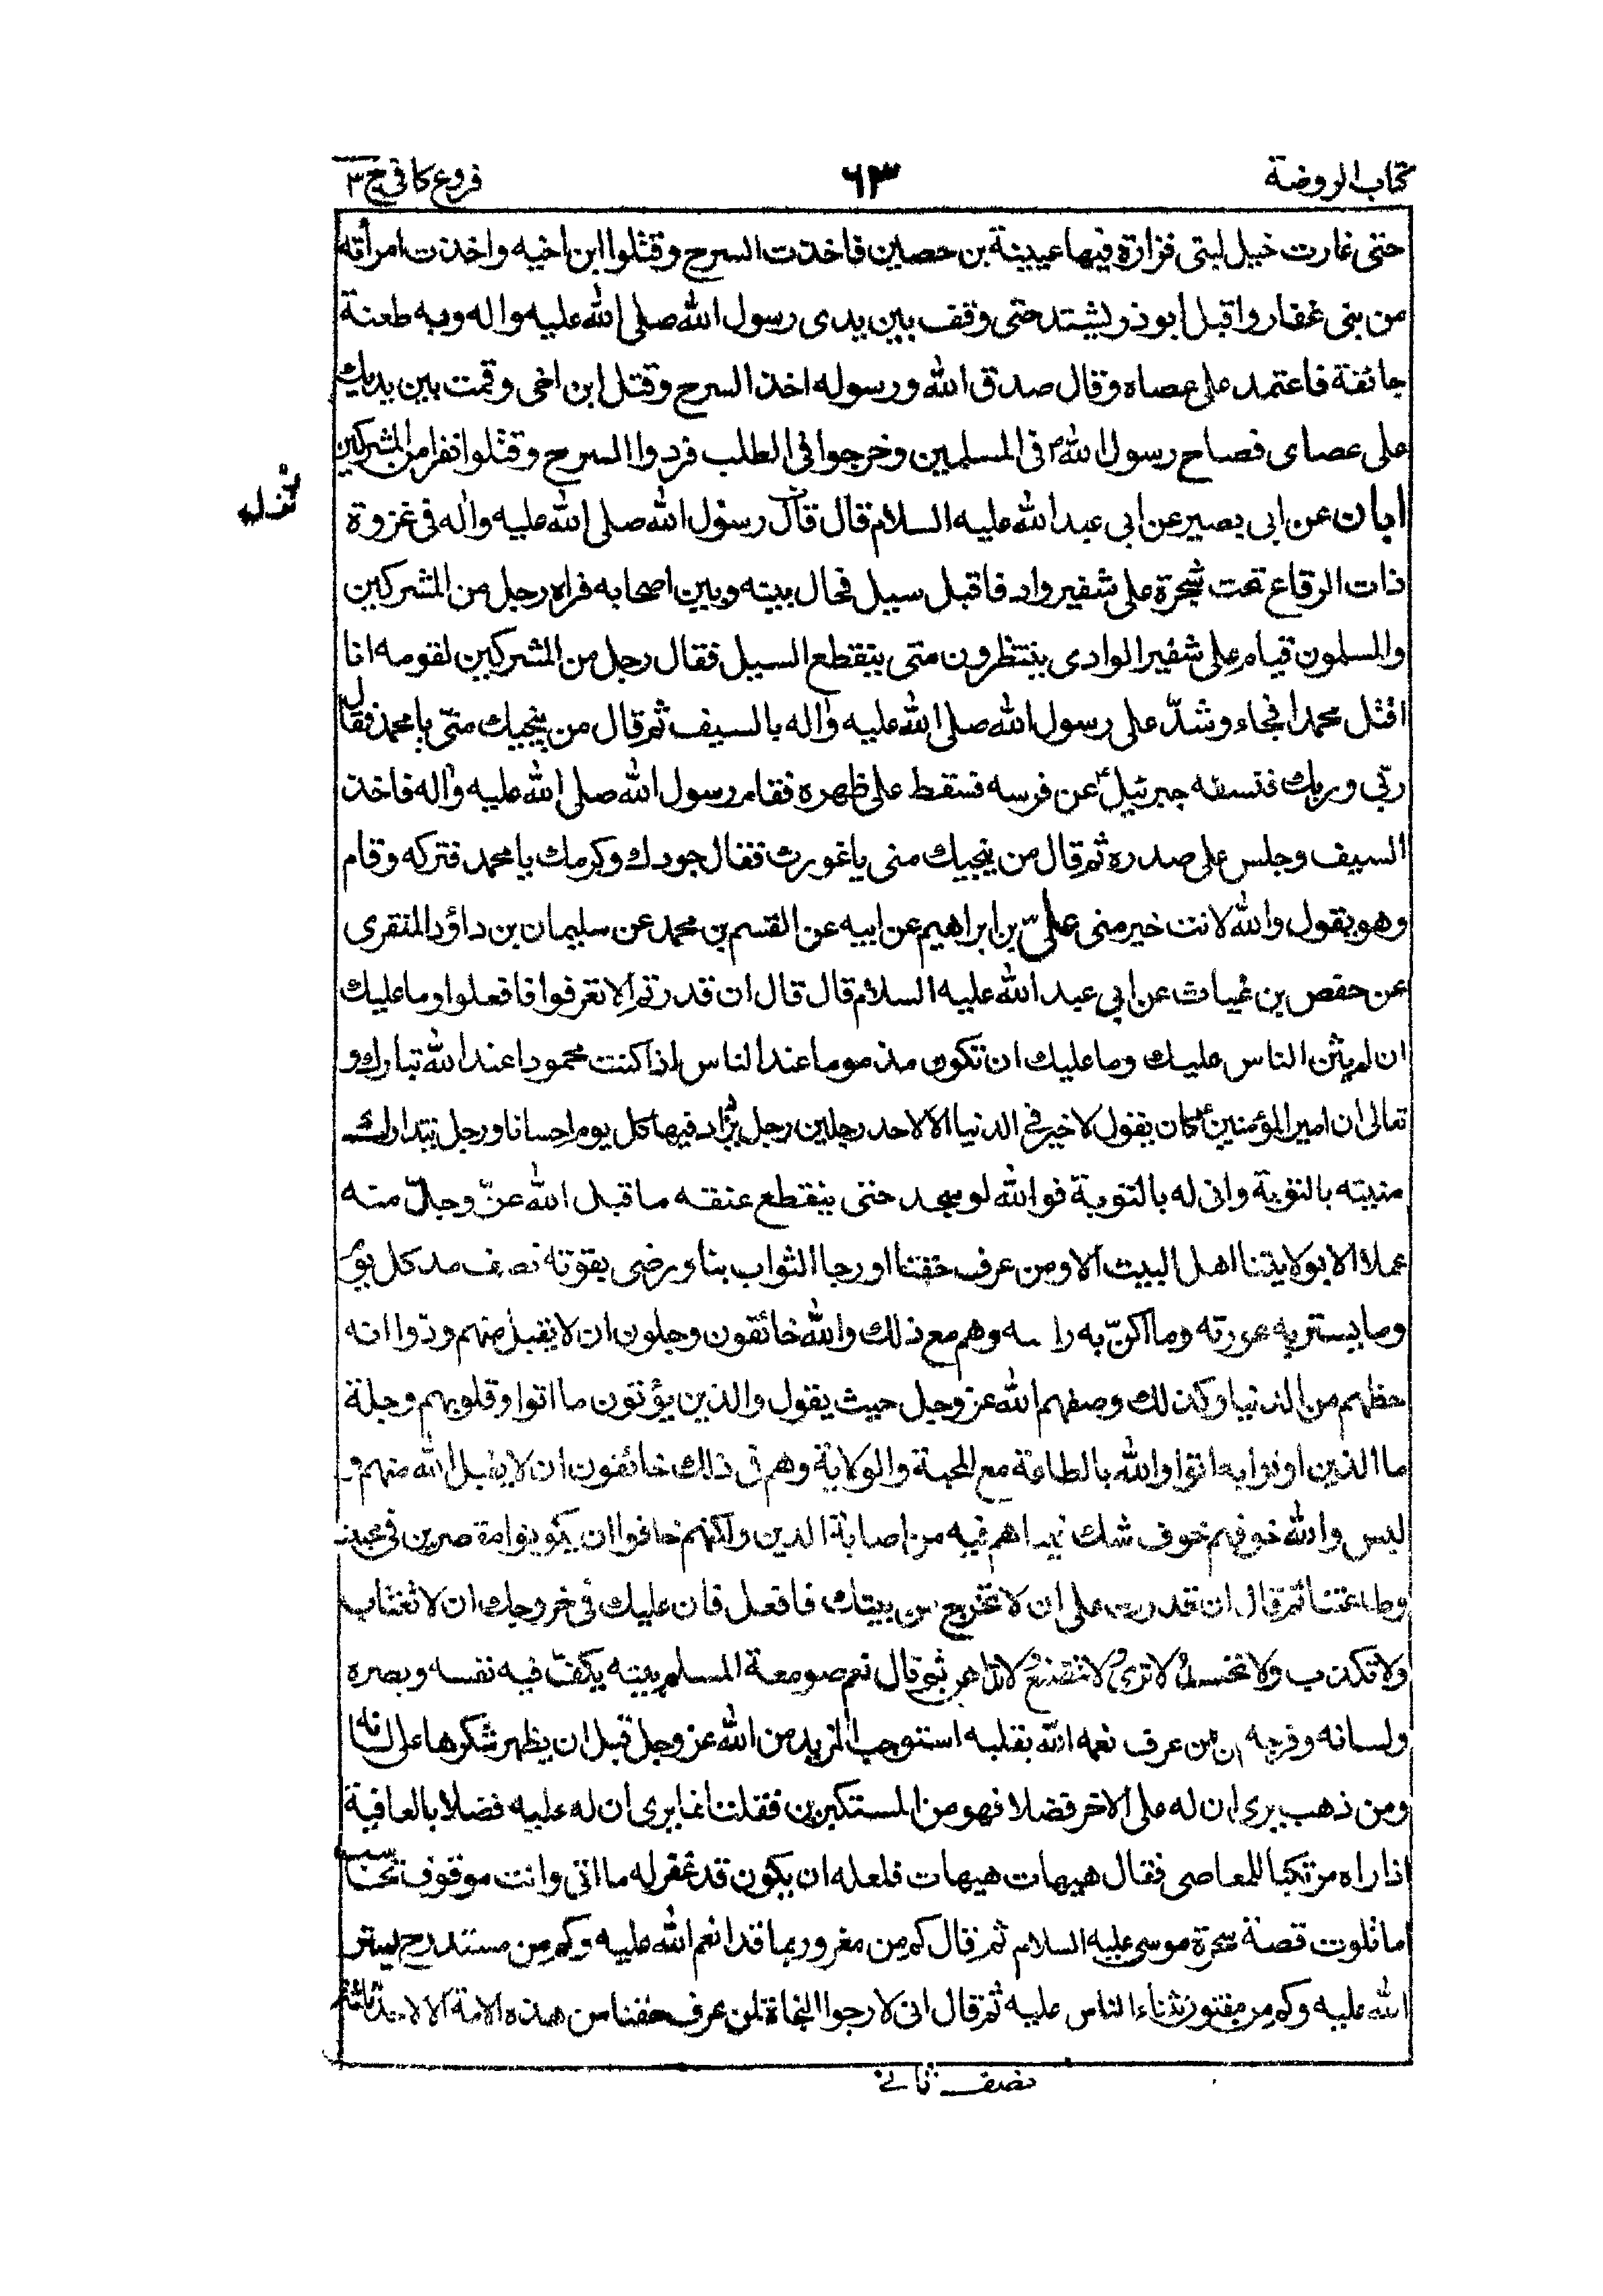 كتاب الروضة
٦٣
فروع كافى ج ٣
حتى غارت خيل لبنى فزارة فيها عيينة بن حصين فاخذت السرح وقتلوا ابن اخيه واخذت امرأته
من بنى غفار واقبل ابوذر يشتد حتى وقف بين يدى رسول الله صلى الله عليه واله وبه طعنة
جائفة فاعتمد على عصاه وقال صدق الله ورسوله اخذ السرح وقتل ابن اخى وقمت بين يديك
على عصاى فصاح رسول الله ص فى المسلمين وخرجوا فى الطلب فردوا السرح وقتلوا نفرا من المشركين
ابان عن ابى بصير عن ابى عبد الله عليه السلام قال قال رسول الله صلى الله عليه واله فى غزوة
نزل
ذات الرقاع تحت شجرة على شفير واد فاقبل سيل فحال بينه وبين اصحابه فراه رجل من المشركين
والمسلمون قيام على شفير الوادى ينتظرون متى ينقطع السيل فقال رجل من المشركين لقومه انا
اقتل محمدا فجاء وشدّ على رسول الله صلى الله عليه واله بالسيف ثم قال من ينجيك منّى يا محمد فقال
ربّى وربك فنسفه جبرئيل ع عن فرسه فسقط على ظهره فقام رسول الله صلى الله عليه واله فاخذ
السيف وجلس على صدره ثم قال من ينجيك منى يا غورث فقال جودك وكرمك يا محمد فتركه وقام
وهو يقول والله لانت خير منى علىّ بن ابراهيم عن ابيه عن القسم بن محمد عن سليمان بن داؤد المنقرى
عن حفص بن غياث عن ابى عبد الله عليه السلام قال قال ان قدرتم الا تعرفوا فافعلوا وما عليك
ان لم يثن الناس عليك وما عليك ان تكون مذموما عند الناس اذا كنت محمودا عند الله تبارك و
تعالى ان امير المؤمنين ع كان يقول لا خير فى الدنيا الا لاحد رجلين رجل يزداد فيها كل يوم احسانا ورجل يتدارك
منيته بالتوبة وانى له بالتوبة فو الله لو سجد حتى ينقطع عنقه ما قبل الله عزّ وجلّ منه
عملا الا بولايتنا اهل البيت الا ومن عرف حقنا او رجا الثواب بنا ورضى بقوته نصف مد كل يوم
وما يستر به عورته وما اكنّ به راسه وهم مع ذلك والله خائفون وجلون ان لا يقبل منهم ودوا انه
حظهم من الدنيا وكذلك وصفهم الله عز وجل حيث يقول والذين يؤتون ما اتوا وقلوبهم وجلة
ما الذين اوتوا به اتوا والله بالطاعة مع المحبة والولاية وهم فى ذلك خائفون ان لا يقبل الله منهم و
ليس والله خوفهم خوف شك فيما هم فيه من اصابة الدين ولكنهم خافوا ان يكونوا مقصرين فى محبتنا
وطاعتنا ثم قال ان قدرت على ان لا تخرج من بيتك فافعل فان عليك فى خروجك ان لا تغتاب
ولا تكذب ولا تحسد ولا ترى ولا تتصنع ولا تداهن ثم قال نعم صومعة المسلم بيته يكف فيه نفسه وبصره
ولسانه وفرجه ان من عرف نعمه الله بقلبه استوجب المزيد من الله عز وجل قبل ان يظهر شكرها على لسانه
ومن ذهب يرى ان له على الاخر فضلا فهو من المستكبرين فقلت انما يرى ان له عليه فضلا بالعافية
اذا راه مرتكبا للمعاصى فقال هيهات هيهات فلعله ان يكون قد غفر له ما اتى وانت موقوف تحاسب
اما تلوت قصة سحرة موسى عليه السلام ثم قال كم من مغرور بما قد انعم الله عليه وكم من مستدرج يستر
الله عليه وكم من مفتون بثناء الناس عليه ثم قال انى لارجوا النجاة لمن عرف حقنا من هذه الامة الا لاحد ثلثة
نصف ثانى